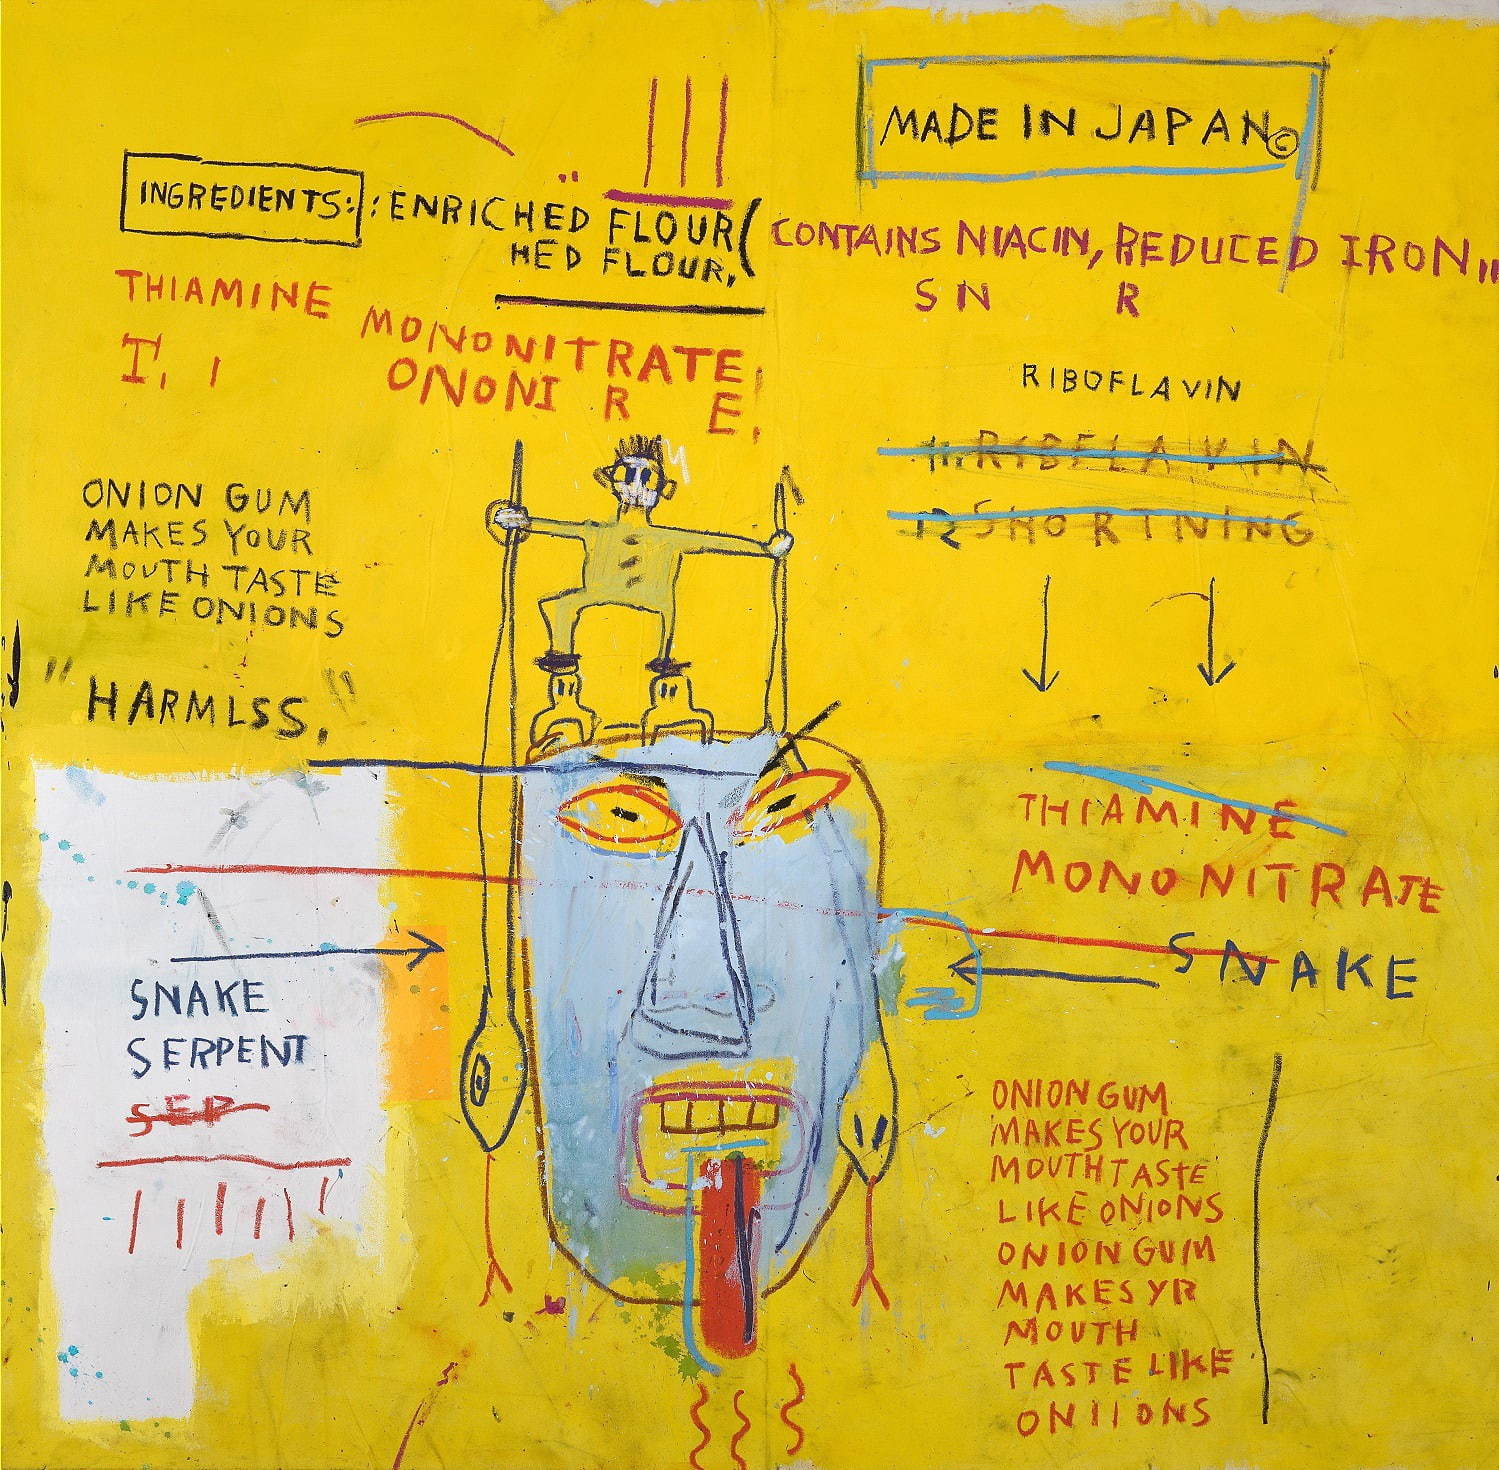 MADE IN JAPAN©
INGREDIENTS: : ENRICHED FLOUR (
HED FLOUR,
CONTAINS NIACIN, REDUCED IRON,,
S N R
THIAMINE MONONITRATE,
T, I ONONI R E,
RIBOFLAVIN
11. RIBFLAVIN
12 SHORTNING
ONION GUM
MAKES YOUR
MOUTH TASTE
LIKE ONIONS
"HARMLSS,"
THIAMINE
MONONITRATE
SNAKE
SNAKE
SERPENT
SEP
ONION GUM
MAKES YOUR
MOUTH TASTE
LIKE ONIONS
ONION GUM
MAKES YR
MOUTH
TASTE LIKE
ONIIONS